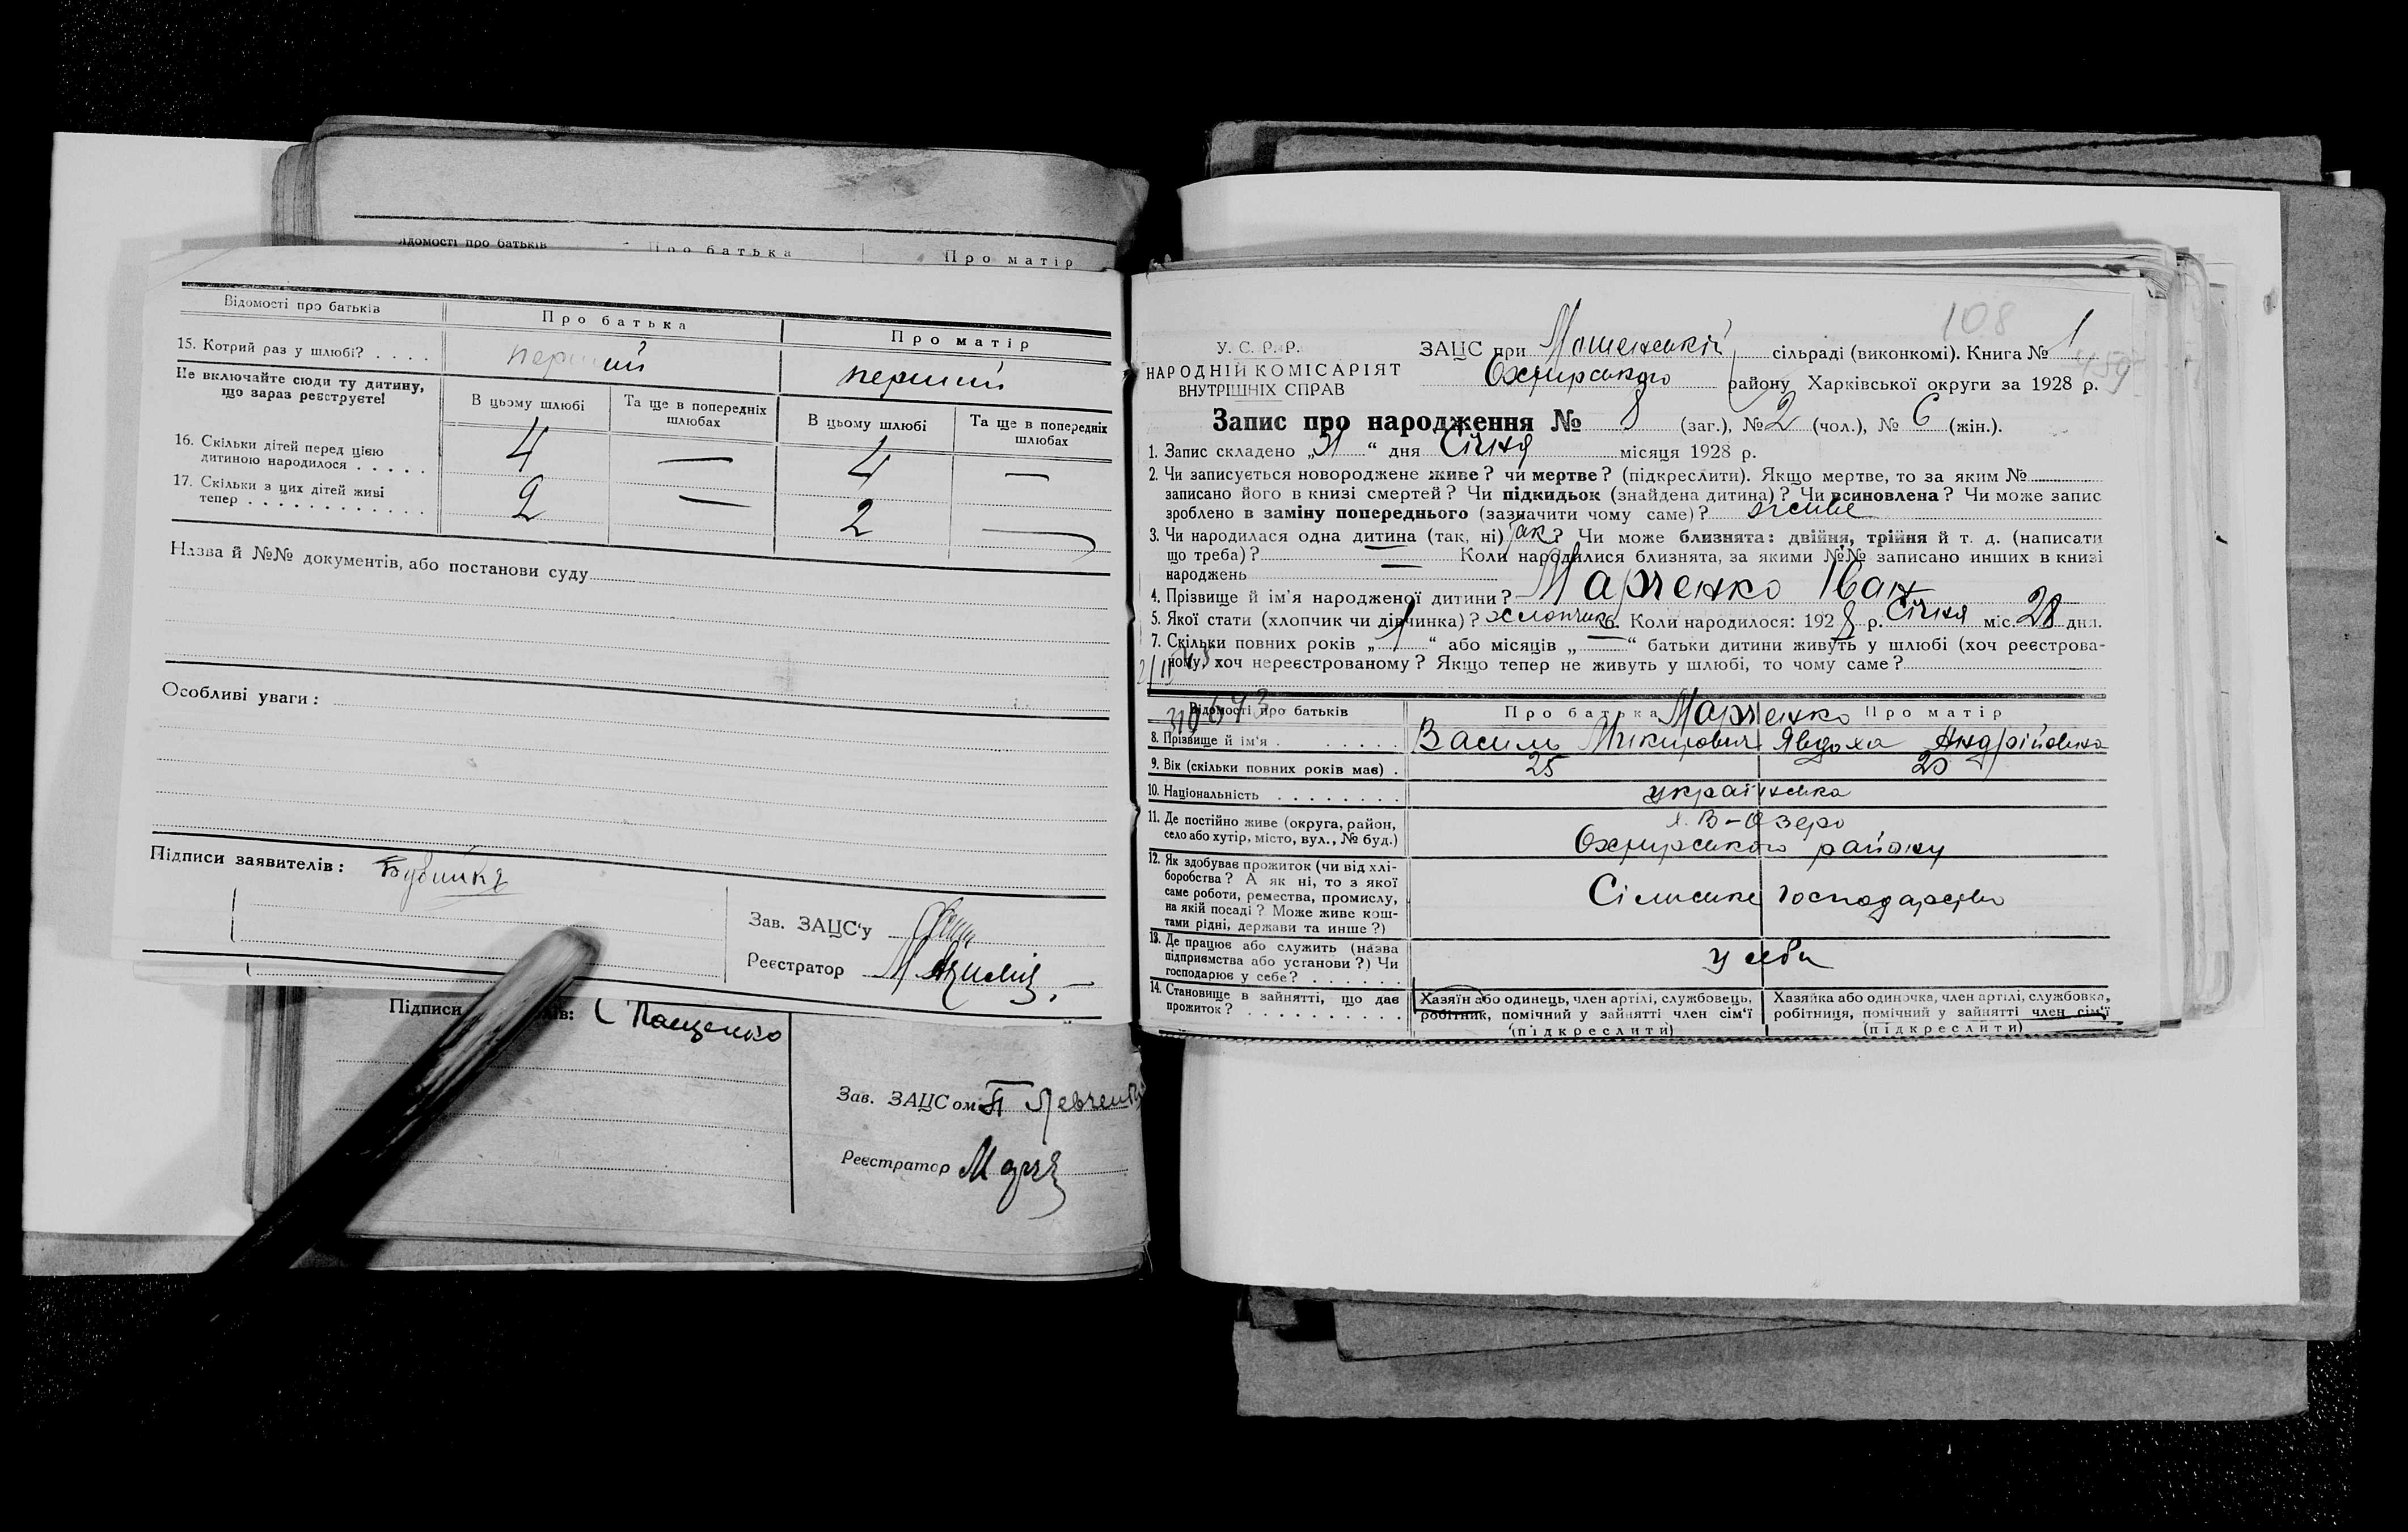 Відомості про батьків
Про батька
Про матір
Відомості про батьків
Про батька
Про матір
15. Котрий раз у шлюбі? . . . .
перший
перший
Не включайте сюди ту дитину,
що зараз реєструєте!
В цьому шлюбі
Та ще в попередніх
шлюбах
В цьому шлюбі
Та ще в попередніх
шлюбах
16. Скільки дітей перед цією
дитиною народилося . . . . .
4 — 4 —
17. Скільки з цих дітей живі
тепер . . . . . . . . . . . .
2 — 2 —
Назва й №№ документів, або постанови суду
Особливі уваги:
Підписи заявителів:
Зав. ЗАЦС'у
Реєстратор
Підписи
ів: Пащенко
Зав. ЗАЦСом П Левченко
Реєстратор
108
У. С. Р. Р.
НАРОДНІЙ КОМІСАРІЯТ
ВНУТРІШНІХ СПРАВ
ЗАЦС при Мошенській сільраді (виконкомі). Книга № 1
Охтирського району Харківської округи за 1928 р.
Запис про народження № 8 (заг.), № 2 (чол.), № 6 (жін.).
1. Запис складено „31“ дня Січня місяця 1928 р.
2. Чи записується новороджене живе? чи мертве? (підкреслити). Якщо мертве, то за яким №
записано його в книзі смертей? Чи підкидьок (знайдена дитина)? Чи всиновлена? Чи може запис
зроблено в заміну попереднього (зазначити чому саме)? живе
3. Чи народилася одна дитина (так, ні) так? Чи може близнята: двійня, трійня й т. д. (написати
що треба)? — Коли народилися близнята, за якими №№ записано инших в книзі
народжень —
4. Прізвище й ім'я народженої дитини? Марченко Іван
5. Якої стати (хлопчик чи дівчинка)? хлопчик 6. Коли народилося: 1928 р. Січня міс. 28 дня.
7. Скільки повних років „ “ або місяців „—“ батьки дитини живуть у шлюбі (хоч реєстрова-
ному, хоч нереєстрованому? Якщо тепер не живуть у шлюбі, то чому саме?
Відомості про батьків
Про батька
Марченко
Про матір
8. Прізвище й ім'я . . . . . . .
Василь Микитович
Явдоха Андріївна
9. Вік (скільки повних років має) .
25
25
10. Національність . . . . . . . .
українська
11. Де постійно живе (округа, район,
село або хутір, місто, вул., № буд.)
х. В-Озеро
Охтирського району
12. Як здобуває прожиток (чи від хлі-
боробства? А як ні, то з якої
саме роботи, ремества, промислу,
на якій посаді? Може живе кош-
тами рідні, держави та инше?)
Сільське господарство
13. Де працює або служить (назва
підприємства або установи?) Чи
господарює у себе? . . . . . .
у себе
14. Становище в зайнятті, що дає
прожиток? . . . . . . . . . .
Хазяїн або одинець, член артілі, службовець,
робітник, помічний у зайнятті член сім'ї
(підкреслити)
Хазяйка або одиночка, член артілі, службовка,
робітниця, помічний у зайнятті член сім'ї
(підкреслити)